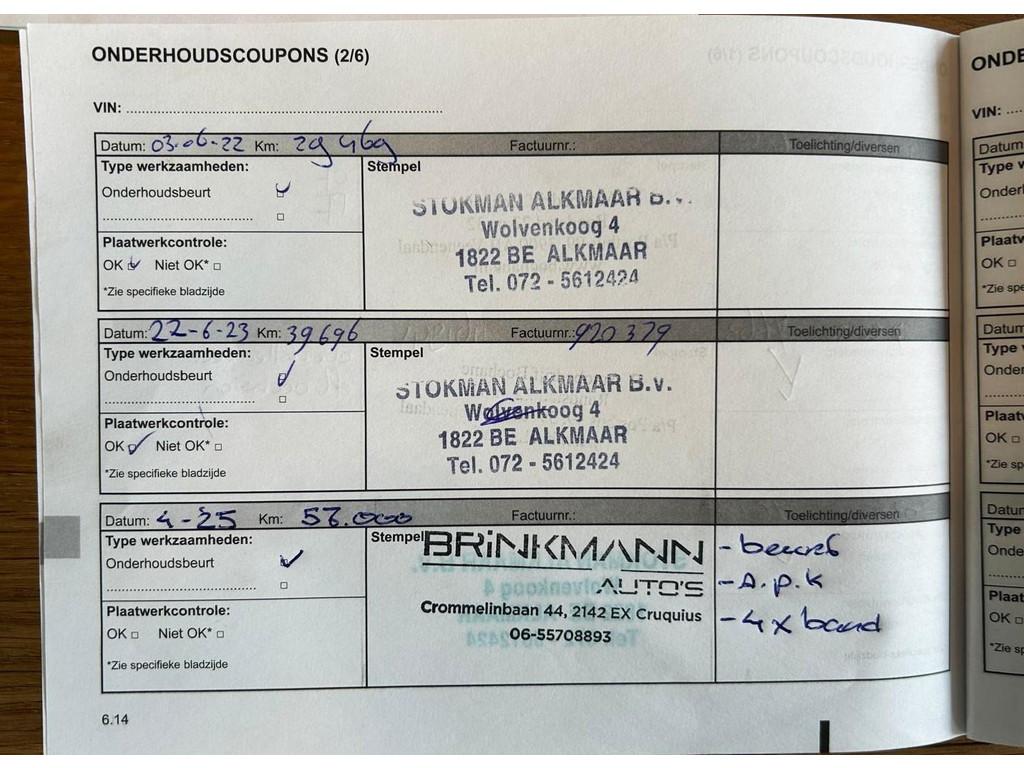 ONDERHOUDSCOUPONS (2/6)
VIN: ....................
Datum: 03-06-22 Km: 29 469 Factuurnr.: Toelichting/diversen
Type werkzaamheden: Stempel
Onderhoudsbeurt
STOKMAN ALKMAAR B.V.
Wolvenkoog 4
1822 BE ALKMAAR
Tel. 072 - 5612424
Plaatwerkcontrole:
OK Niet OK*
*Zie specifieke bladzijde
Datum: 22-6-23 Km: 39696 Factuurnr.: 920379 Toelichting/diversen
Type werkzaamheden: Stempel
Onderhoudsbeurt
STOKMAN ALKMAAR B.V.
Wolvenkoog 4
1822 BE ALKMAAR
Tel. 072 - 5612424
Plaatwerkcontrole:
OK Niet OK*
*Zie specifieke bladzijde
Datum: 4-25 Km: 53.000 Factuurnr.: Toelichting/diversen
Type werkzaamheden: Stempel
Onderhoudsbeurt
BRINKMANN
AUTO'S
Crommelinbaan 44, 2142 EX Cruquius
06-55708893
- beurt
- A.p.k
- 4x band
Plaatwerkcontrole:
OK Niet OK*
*Zie specifieke bladzijde
6.14
ONDE
VIN:
Datum
Type w
Onderh
Plaatw
OK
*Zie spe
Datum
Type
Onder
Plaat
OK
*Zie sp
Datu
Type
Onde
Plaat
OK
*Zie s